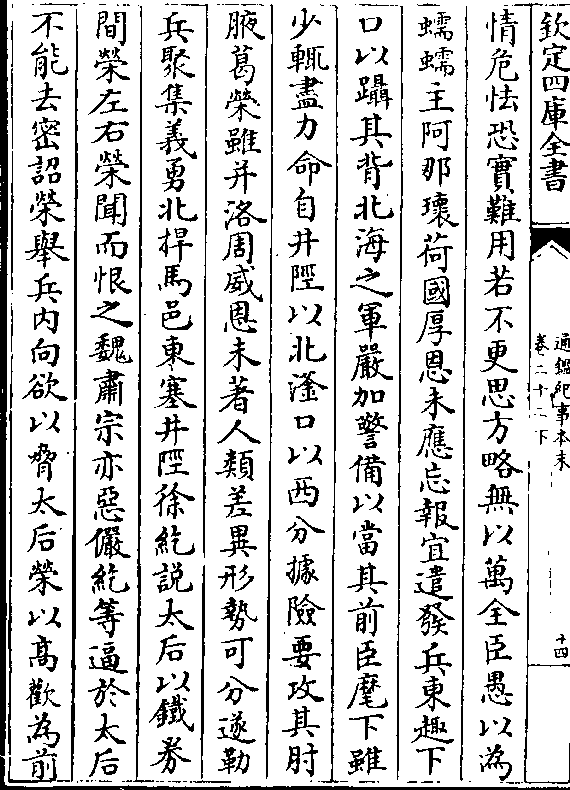 欽定四庫全書
通鑑紀事本末
卷二十二下
十四
情危怯恐實難用若不更思方略無以萬全臣愚以為
蠕蠕主阿那瓌荷國厚恩未應忘報宜遣發兵東趣下
口以躡其背北海之軍嚴加警備以當其前臣麾下雖
少輒盡力命自井陘以北滏口以西分據險要攻其肘
腋葛榮雖并洛周威恩未著人類差異形勢可分遂勒
兵聚集義勇北捍馬邑東塞井陘徐紇説太后以鐵券
間榮左右榮聞而恨之魏肅宗亦惡儼紇等逼於太后
不能去密詔榮舉兵内向欲以脅太后榮以髙歡為前